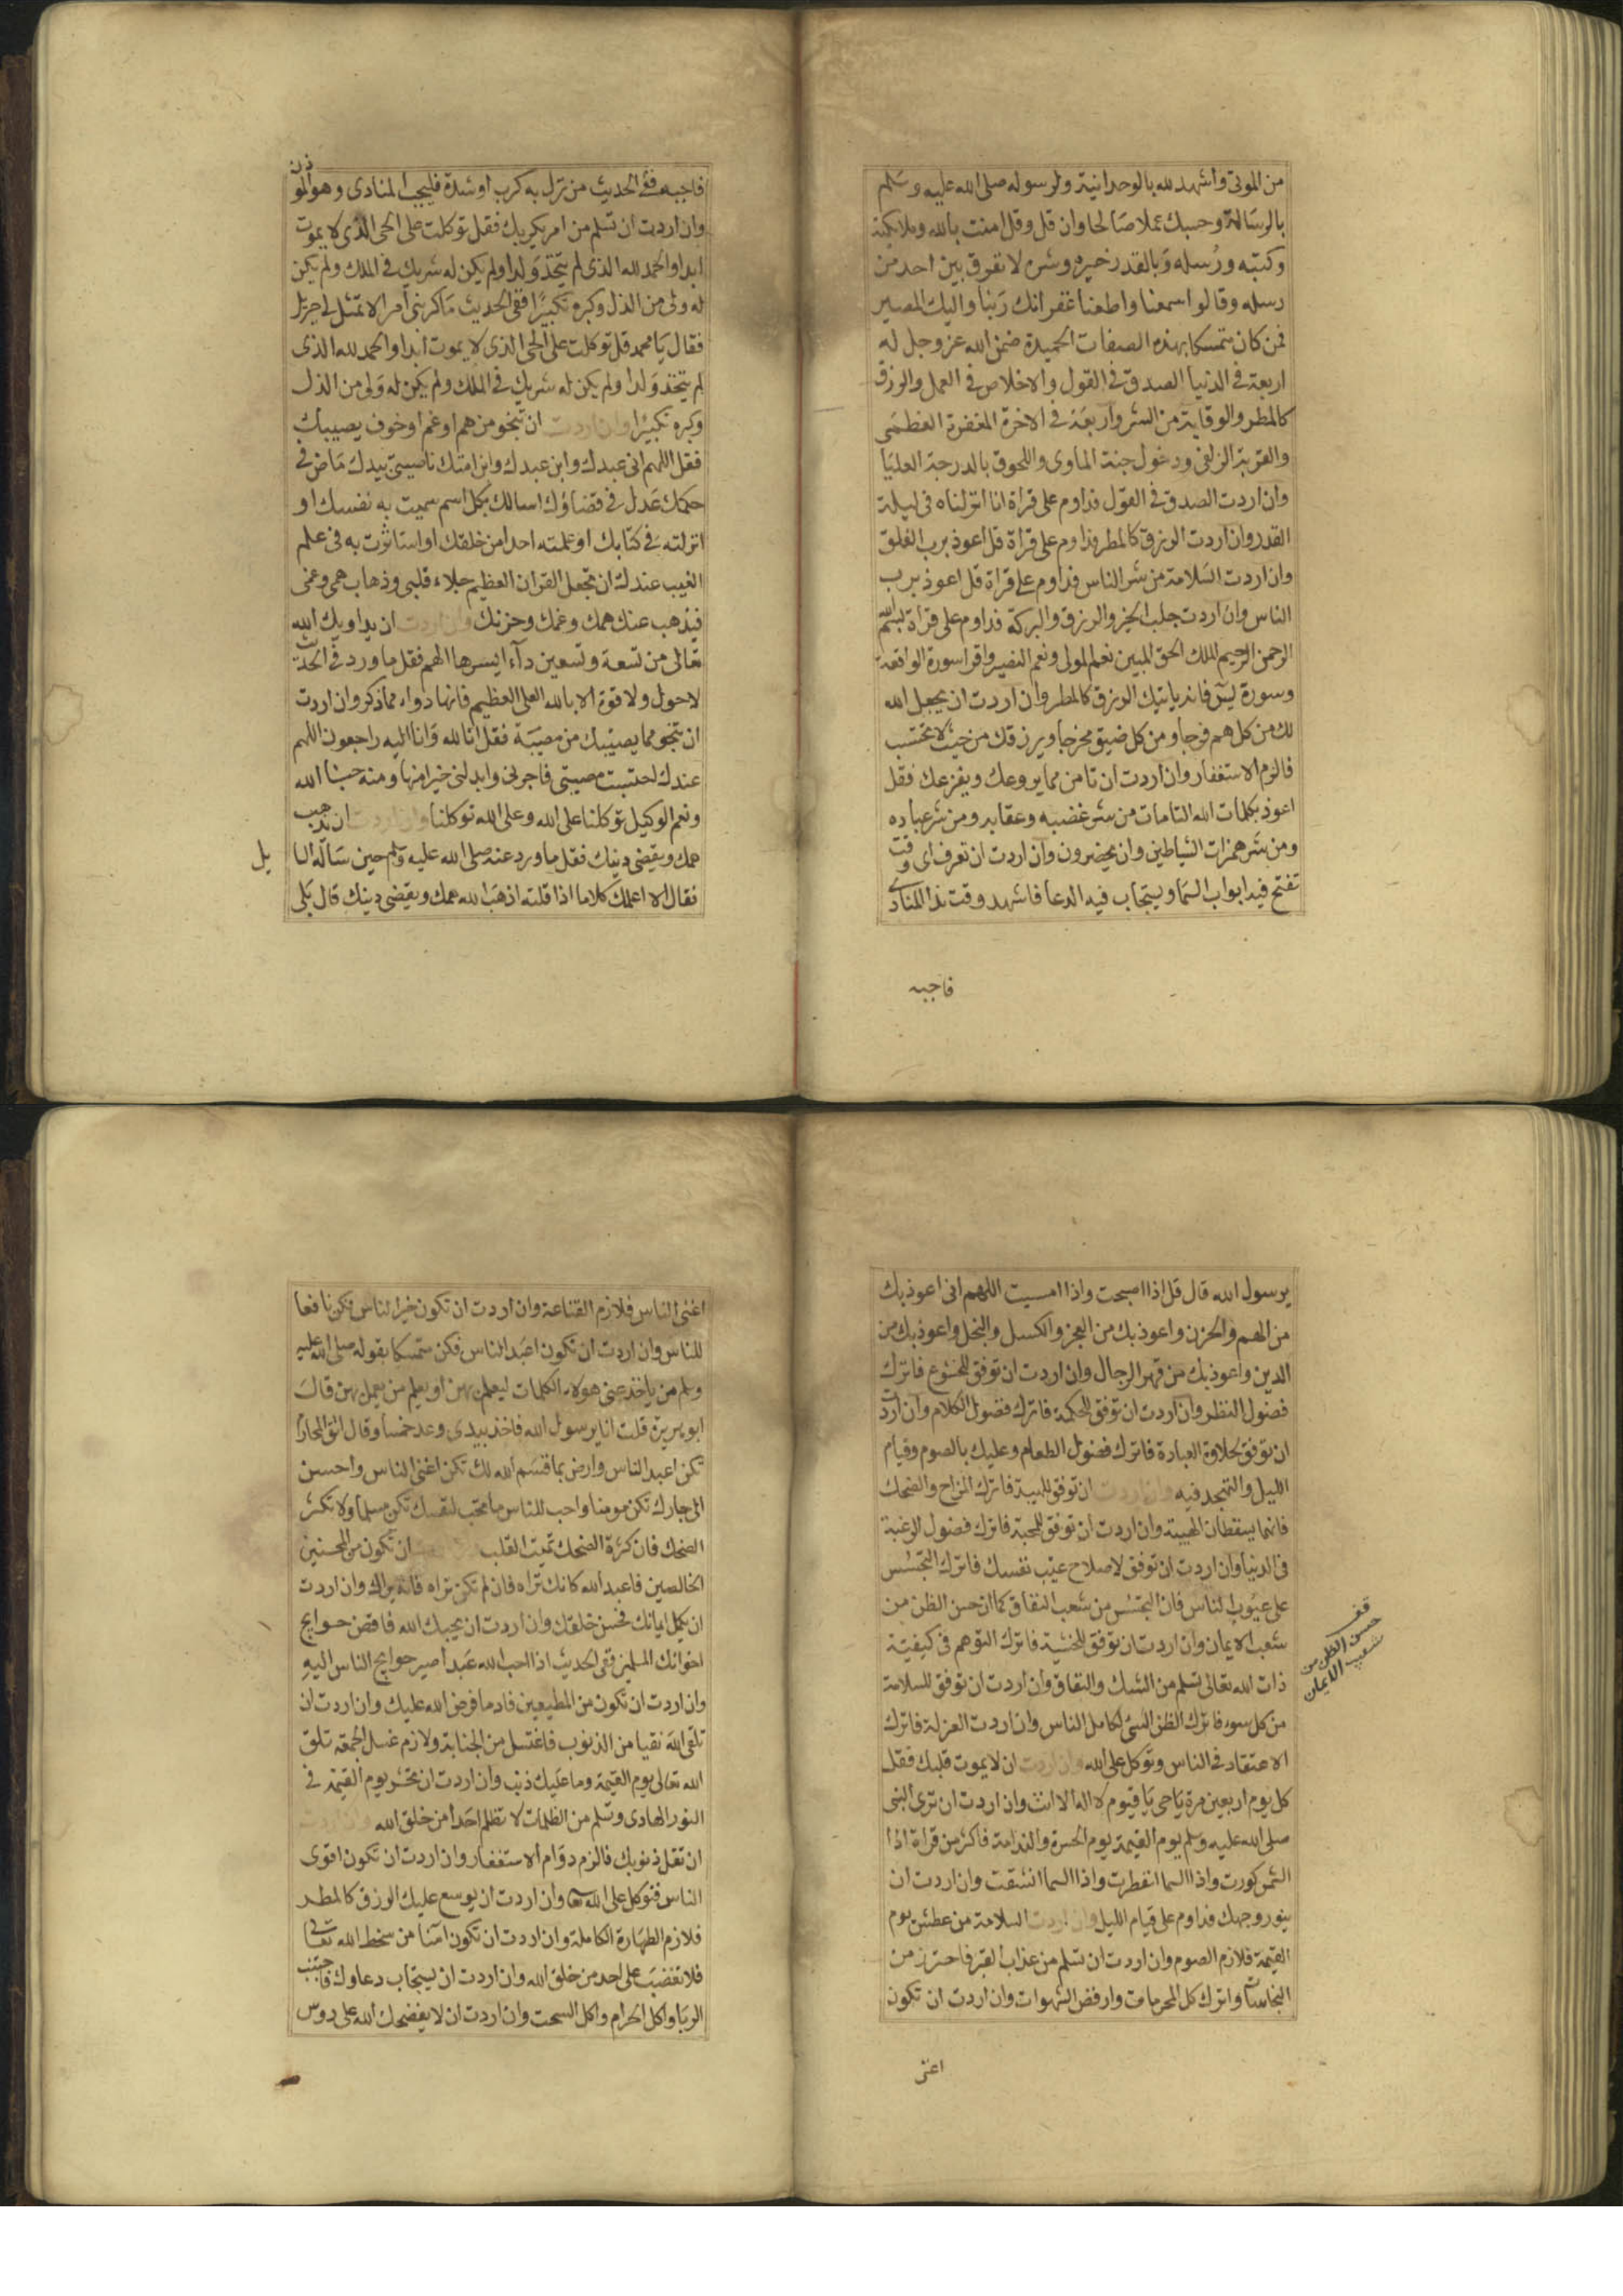 من الموتى واشهد لله بالوحدانية ولرسوله صلى الله عليه وسلم
بالرسالة وحسبك عملا صالحا وان قل وقل امنت بالله وملائكته
وكتبه ورسله وبالقدر خيره وشره لا نفرق بين احد من
رسله وقالوا سمعنا واطعنا غفرانك ربنا واليك المصير
فمن كان متمسكا بهذه الصفات الحميدة ضمن الله عز وجل له
اربعة في الدنيا الصدق في القول والاخلاص في العمل والرزق
كالمطر والوقاية من الشر واربعة في الاخرة المغفرة العظمى
والقربة الزلفى ودخول جنة الماوى واللحوق بالدرجة العليا
وان اردت الصدق في القول فداوم على قراة انا انزلناه في ليلة
القدر وان اردت الرزق كالمطر فداوم على قراة قل اعوذ برب الفلق
وان اردت السلامة من شر الناس فداوم على قراة قل اعوذ برب
الناس وان اردت جلب الخير والرزق والبركة فداوم على قراة بسم الله
الرحمن الرحيم الملك الحق المبين نعم المولى ونعم النصير واقرا سورة الواقعة
وسورة يس فانه ياتيك الرزق كالمطر وان اردت ان يجعل الله
لك من كل هم فرجا ومن كل ضيق مخرجا ويرزقك من حيث لا تحتسب
فالزم الاستغفار وان اردت ان تامن مما يروعك ويفزعك فقل
اعوذ بكلمات الله التامات من شر غضبه وعقابه ومن شر عباده
ومن شر همزات الشياطين وان يحضرون وان اردت ان تعرف اى وقت
تفتح فيه ابواب السما ويستجاب فيه الدعا فاشهد وقت نداالمنادى
فاجبه
فاجبه ففي الحديث من نزل به كرب او شدة فليجب المنادى وهو الموذن
وان اردت ان تسلم من امر يكربك فقل توكلت على الحى الذى لا يموت
ابدا والحمد لله الذى لم يتخذ ولدا ولم يكن له شريك في الملك ولم يكن
له ولى من الذل وكبره تكبيرا ففي الحديث ما كربنى امر الا تمثل لى جبريل
فقال يا محمد قل توكلت على الحى الذى لا يموت ابدا والحمد لله الذى
لم يتخذ ولدا ولم يكن له شريك في الملك ولم يكن له ولى من الذل
وكبره تكبيرا وان اردت ان تنجو من هم او غم او خوف يصيبك
فقل اللهم انى عبدك وابن عبدك وابن امتك ناصيتى بيدك ماض في
حكمك عدل في قضاؤك اسالك بكل اسم سميت به نفسك او
انزلته في كتابك او علمته احدا من خلقك او استاثرت به في علم
الغيب عندك ان تجعل القران العظيم جلاء قلبى وذهاب همى وغمى
فيذهب عنك همك وغمك وحزنك وان اردت ان يداويك الله
تعالى من تسعة وتسعين داء ايسرها الهم فقل ما ورد في الحديث
لا حول ولا قوة الا بالله العلى العظيم فانها دواء مما ذكر وان اردت
ان تنجو مما يصيبك من مصيبة فقل انا لله وانا اليه راجعون اللهم
عندك احتسبت مصيبتى فاجرنى وابدلنى خيرا منها ومنه حسبنا الله
ونعم الوكيل توكلنا على الله وعلى الله توكلنا وان اردت ان يذهب
همك ويقضى دينك فقل ما ورد عنه صلى الله عليه وسلم حين ساله السا يل
فقال الا اعلمك كلاما اذا قلته اذهب الله همك ويقضى دينك قال بلى
يرسول الله قال قل اذا اصبحت واذا امسيت اللهم انى اعوذ بك
من الهم والحزن واعوذ بك من العجز والكسل والبخل واعوذ بك من
الدين واعوذ بك من قهر الرجال وان اردت ان توفق للخشوع فاترك
فضول النظر وان اردت ان توفق للحكمة فاترك فضول الكلام وان اردت
ان توفق لحلاوة العبادة فاترك فضول الطعام وعليك بالصوم وقيام
الليل والتهجد فيه وان اردت ان توفق للهيبة فاترك المزاح والضحك
فانهما يسقطان الهيبة وان اردت ان توفق للمحبة فاترك فضول الرغبة
في الدنيا وان اردت ان توفق لاصلاح عيب نفسك فاترك التجسس
على عيوب الناس فان التجسس من شعب النفاق كما ان حسن الظن من
شعب الايمان وان اردت ان توفق للخشية فاترك التوهم في كيفية
ذات الله تعالى تسلم من الشك والنفاق وان اردت ان توفق للسلامة
من كل سوء فاترك الظن السئ لكامل الناس وان اردت العزلة فاترك
الاعتقاد في الناس وتوكل على الله وان اردت ان لا يموت قلبك فقل
كل يوم اربعين مرة يا حى يا قيوم لا اله الا انت وان اردت ان ترى النبى
صلى الله عليه وسلم يوم القيمة يوم الحسرة والندامة فاكثر من قراة اذا
الشمس كورت واذا السما انفطرت واذا السما انشقت وان اردت ان
ينور وجهك فداوم على قيام الليل وان اردت السلامة من عطش يوم
القيمة فلازم الصوم وان اردت ان تسلم من عذاب القبر فاحترز من
النجاسات واترك كل المحرمات وارفض الشهوات وان اردت ان تكون
قف
حسن الظن من
شعب الايمان
اغنى
اغنى الناس فلازم القناعة وان اردت ان تكون خير الناس فكن نافعا
للناس وان اردت ان تكون اعبد الناس فكن متمسكا بقوله صلى الله عليه
وسلم من ياخذ عنى هولاء الكلمات ليعمل بهن او يعلم من يعمل بهن قال
ابو هريرة قلت انا يرسول الله فاخذ بيدى وعد خمسا وقال اتق المحارم
تكن اعبد الناس وارض بما قسم الله لك تكن اغنى الناس واحسن
الى جارك تكن مومنا واحب للناس ما تحب لنفسك تكن مسلما ولا تكثر
الضحك فان كثرة الضحك تميت القلب وان اردت ان تكون من المحسنين
الخالصين فاعبد الله كانك تراه فان لم تكن تراه فانه يراك وان اردت
ان يكمل ايمانك فحسن خلقك وان اردت ان يحبك الله فاقض حوايج
اخوانك المسلمين ففي الحديث اذا احب الله عبدا صير حوايج الناس اليه
وان اردت ان تكون من المطيعين فاد ما فرض الله عليك وان اردت ان
تلقى الله نقيا من الذنوب فاغتسل من الجنابة ولازم غسل الجمعة تلق
الله تعالى يوم القيمة وما عليك ذنب وان اردت ان تحشر يوم القيمة في
النور الهادى وتسلم من الظلمات لا تظلم احدا من خلق الله وان اردت
ان تقل ذنوبك فالزم دوام الاستغفار وان اردت ان تكون اقوى
الناس فتوكل على الله وان اردت ان يوسع عليك الرزق كالمطر
فلازم الطهارة الكاملة وان اردت ان تكون امنا من سخط الله تعالى
فلا تغضب على احد من خلق الله وان اردت ان يستجاب دعاوك فاجتنب
الربا واكل الحرام واكل السحت وان اردت ان لا يفضحك الله على روس